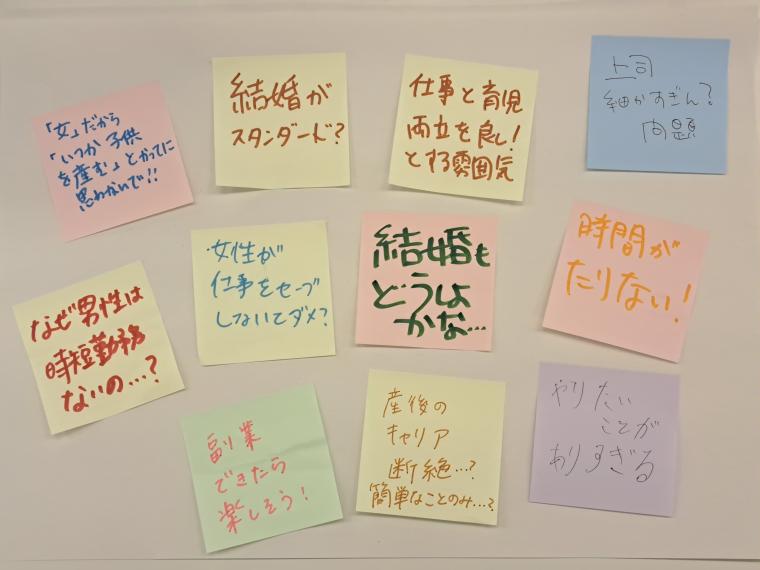 「女」だから
「いつか子供
を産む」とかってに
思わないで!!
結婚が
スタンダード?
仕事と育児
両立を良し!
とする雰囲気
上司
細かすぎん?
問題
なぜ男性は
時短勤務
ないの…?
女性が
仕事をセーブ
しないとダメ?
結婚も
どうしよ
かな…
時間が
たりない!
副業
できたら
楽しそう!
産後の
キャリア
断絶…?
簡単なことのみ…?
やりたい
ことが
ありすぎる